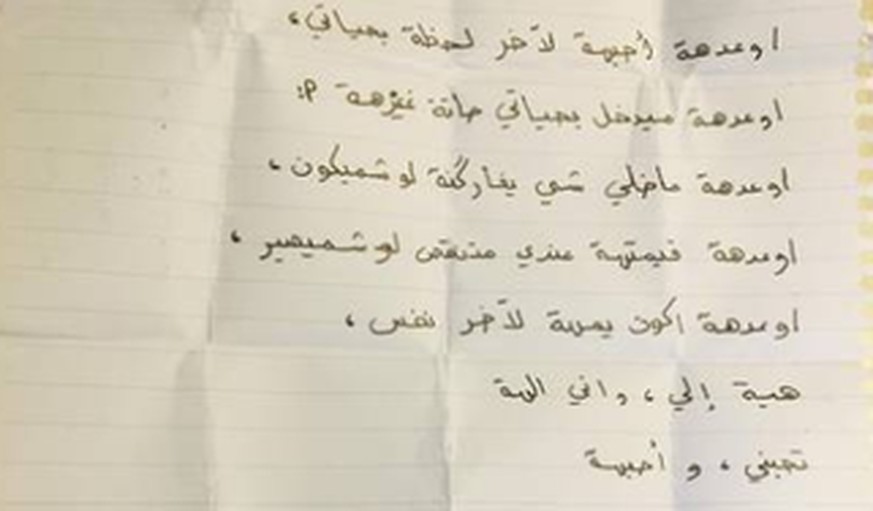 اوعدهة أحبهة لآخر لحظة بحياتي،
اوعدهة ميدخل بحياتي حاتة غيرهة :P
اوعدهة ماخلي شي يفاركنة لو شميكون،
اوعدهة قيمتهة عندي متنقص لو شميصير،
اوعدهة اكون يمهة لآخر نفس،
هية إلي، واني الهة
تحبني، و أحبهة